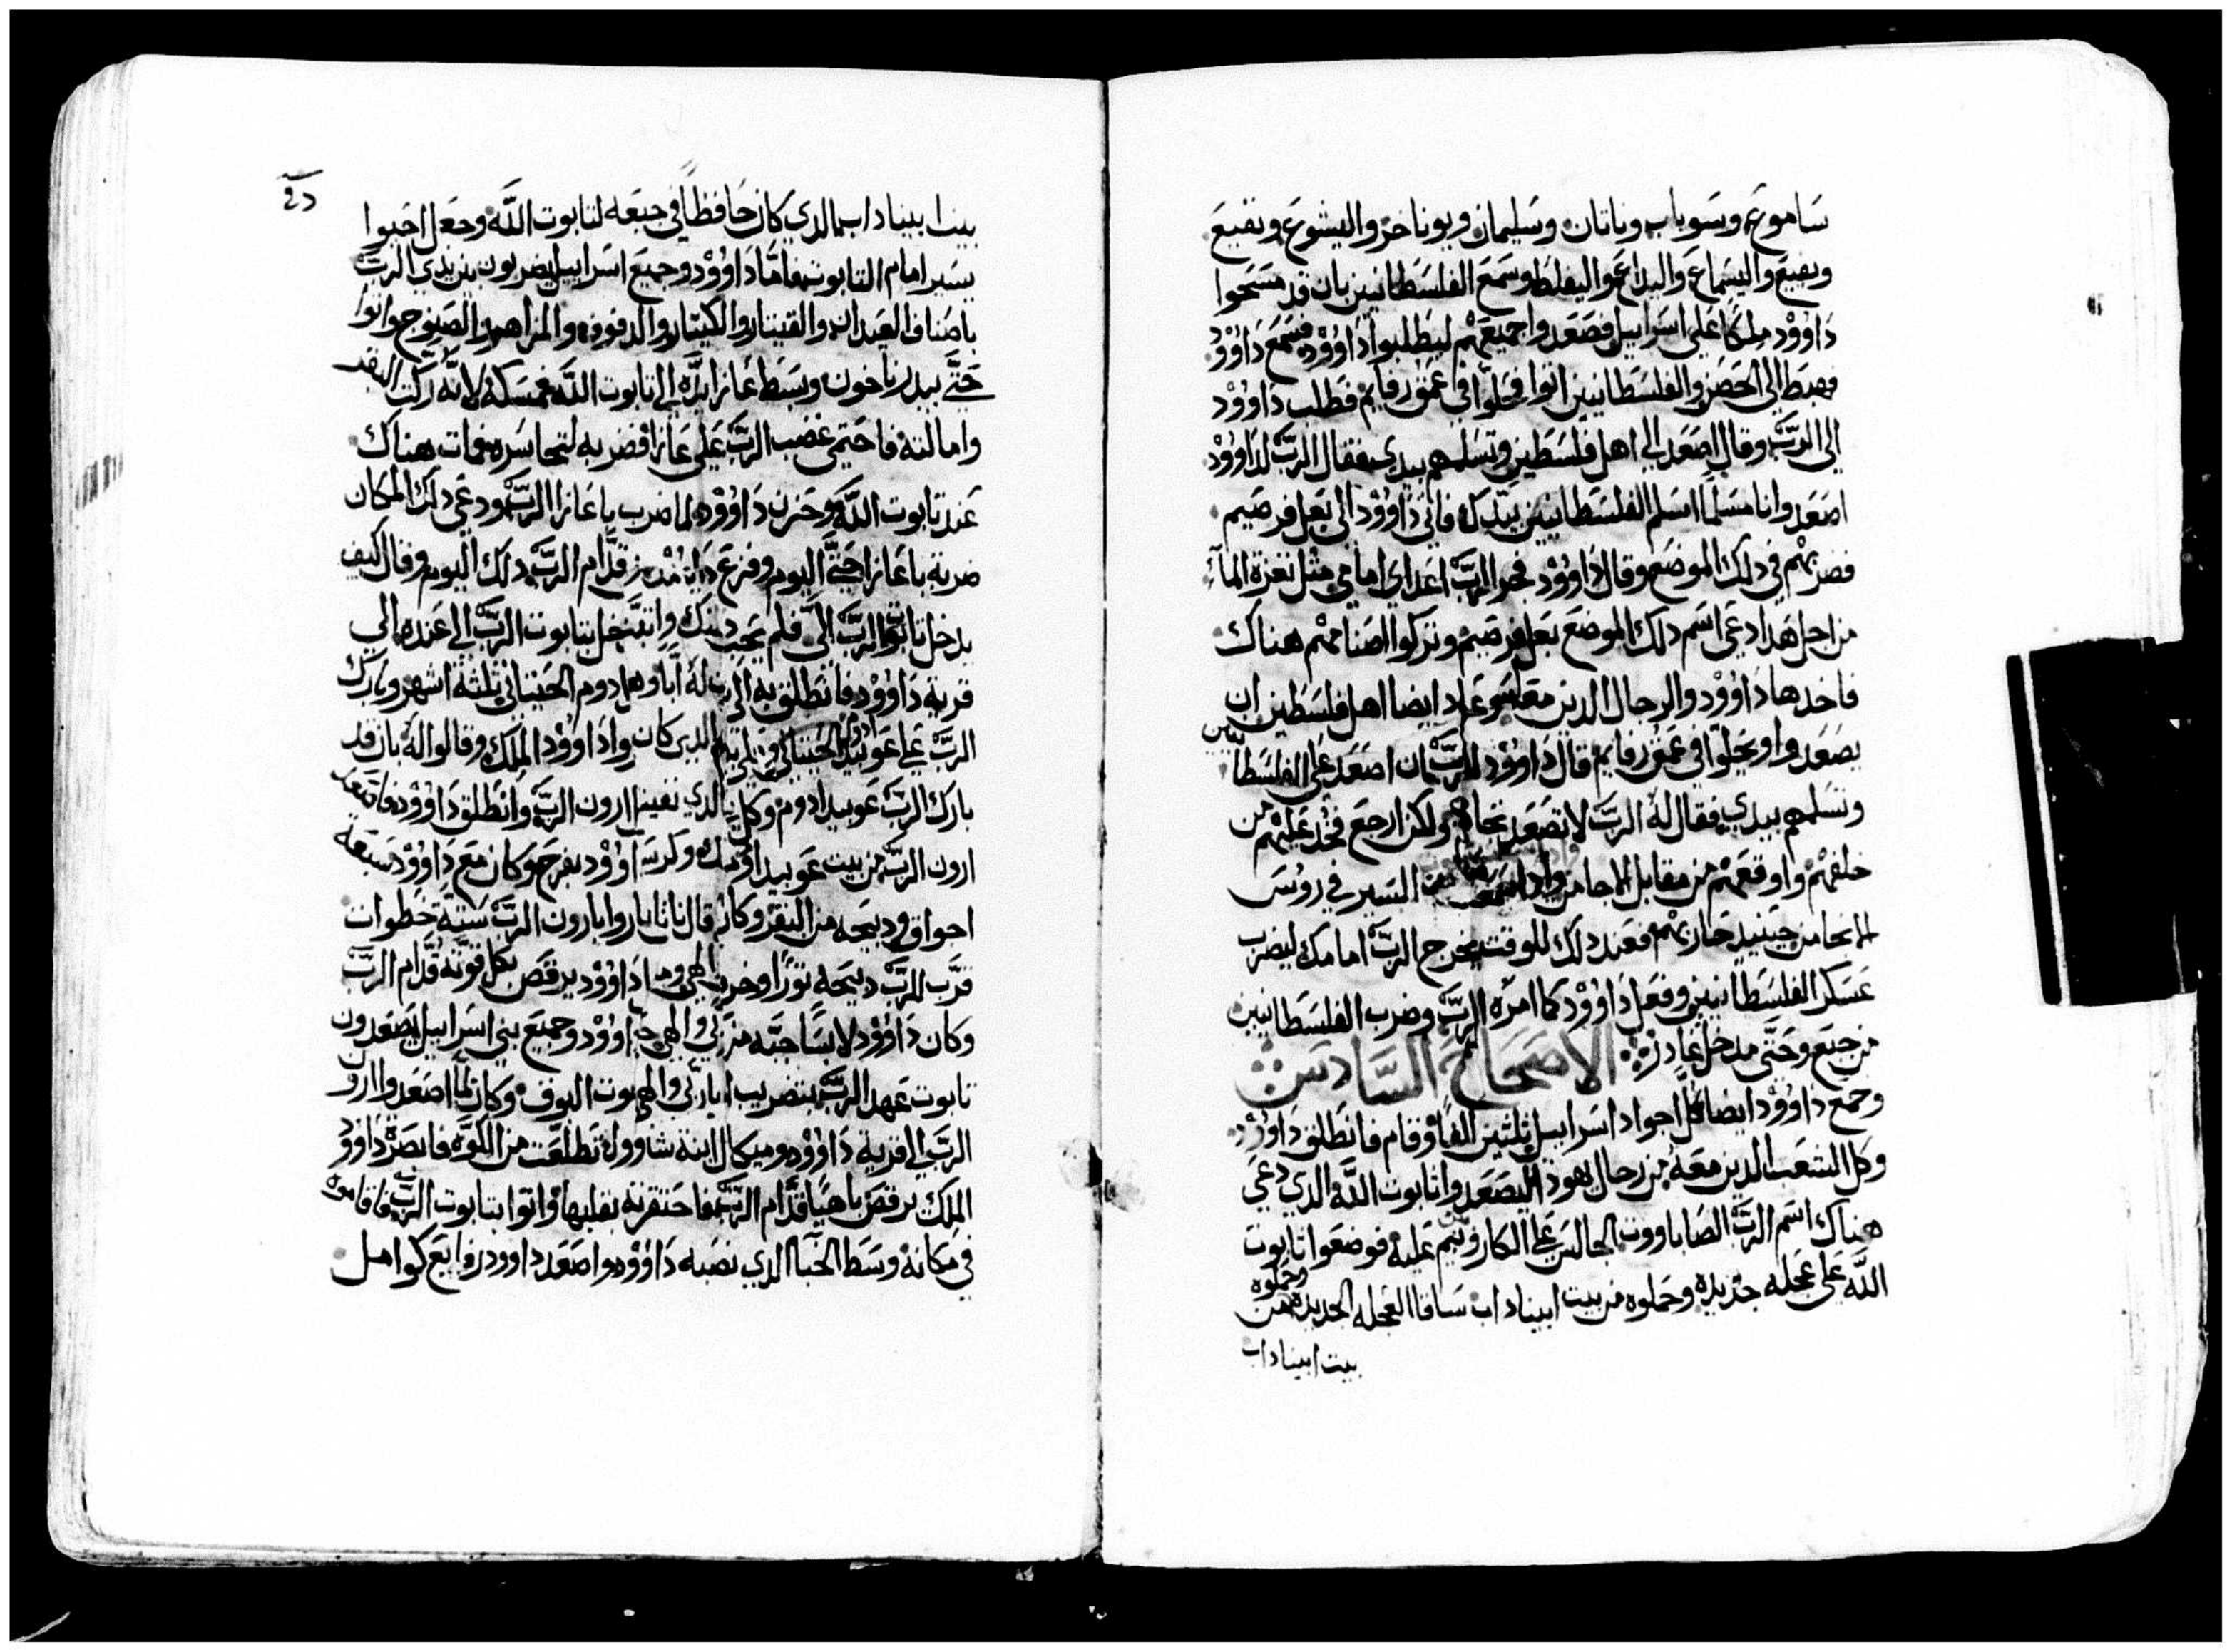 ساموع وسوباب وناتان وسليمان ويوناخر واليشوع ونفيع
ويفيع واليسماع واليداع واليفلط وسمع الفلسطانيين بان قد مسحوا
داوود ملكا على اسراييل فصعدوا جميعهم ليطلبوا داوود فسمع داوود
فهبط الى الحصن والفلسطانيين اتوا فحلوا في عمق رفايم فطلب داوود
الى الرب وقال اصعد الى اهل فلسطين وتسلمهم بيدي فقال الرب لداوود
اصعد وانا مسلما اسلم الفلسطانيين بيدك فاتى داوود الى بعل فرصيم
فضربهم في ذلك الموضع وقال داوود فجر الرب اعداي امامي مثل ثغرة الماء
من اجل هدا دعي اسم دلك الموضع بعل فرصيم وتركوا اصنامهم هناك
فاخدها داوود والرجال الدين معه وعاد ايضا اهل فلسطين ان
يصعدوا ويحلوا في عمق رفايم قال داوود للرب بان اصعد على الفلسطانيين
وتسلمهم بيدي فقال له الرب لا تصعد تجاههم ولكن ارجع فخد عليهم من
خلفهم واوقعهم من مقابل الاجامن وادا سمعت السير في روس
الانجامن حينيد حاربهم فعند دلك الوقت يخرج الرب امامك ليضرب
عسكر الفلسطانيين وفعل داوود كما امره الرب وضرب الفلسطانيين
من جبع وحتى مدخل عادر الاصحاح السادس
وجمع داوود ايضا كل اجواد اسراييل ثلثين الفا وقام فانطلق داوود
وكل الشعب الدين معه من رجال يهودا ليصعدوا تابوت الله الدي دعي
هناك اسم الرب الصاباووت الجالس على الكاروبيم عليه فوضعوا تابوت
الله على عجله جديده وحملوه من بيت ابيناداب ساقا العجله الجديده وحملوه من
بيت ابيناداب
بيت ابيناداب الدي كان حافظا في جبعه لتابوت الله وجعل اخيوا
يسير امام التابوت فاما داوود وجميع اسراييل يضربون بين يدي الرب
باصناف العيدان والقيتار والكيتار والدفوف والمزاهر والصنوج واتوا
حتى بيدر ناخون وبسط عازا يده الى تابوت الله فمسكه لانه ركت البقر
وامالته فاحتمى غضب الرب على عازا فضربه لتجاسره فمات هناك
عند تابوت الله وحزن داوود لما ضرب باعازا الرب ودعى دلك المكان
ضربة باعازا حتى اليوم وفزع داوود من قدام الرب دلك اليوم وقال كيف
يدخل تابوت الرب الي فلم يحب دلك وان يدخل بتابوت الرب الى عنده الى
قرية داوود فانطلق به الى بيت له اباوهادوم الحيتاني ثلثة اشهر وبارك
الرب على عوبيد الحيتاني الدين كان واداوود الملك وقالوا له بان قد
بارك الرب عوبيد ادوم وكل الدي بقينا ارون الرب وانطلق داوود فاصعد
ارون الرب من بيت عوبيد اوم وكرسه داوود بفرح وكان مع داوود سبعة
اجواق ودبيحه من البقر وكان قال نانا باروا بارون الرب ستة خطوات
قرب للرب دبيحه ثورا وخروف داوود يرقص بكل قوته قدام الرب
وكان داوود لابسا جبه داوود وجميع بني اسراييل يصعدون
تابوت عهد الرب بتضريب البوق وكان لما اصعدوا ارون
الرب الى قرية داوود وميكال ابنة شاوول تطلعت من الكوة فابصرة داوود
الملك يرقص باهيا قدام الرب فاحتقرته بقلبها واتوا بتابوت الرب فاقاموه
في مكانه وسط الخبا الدي نصبه داوود واصعد داوود روايع كوامل